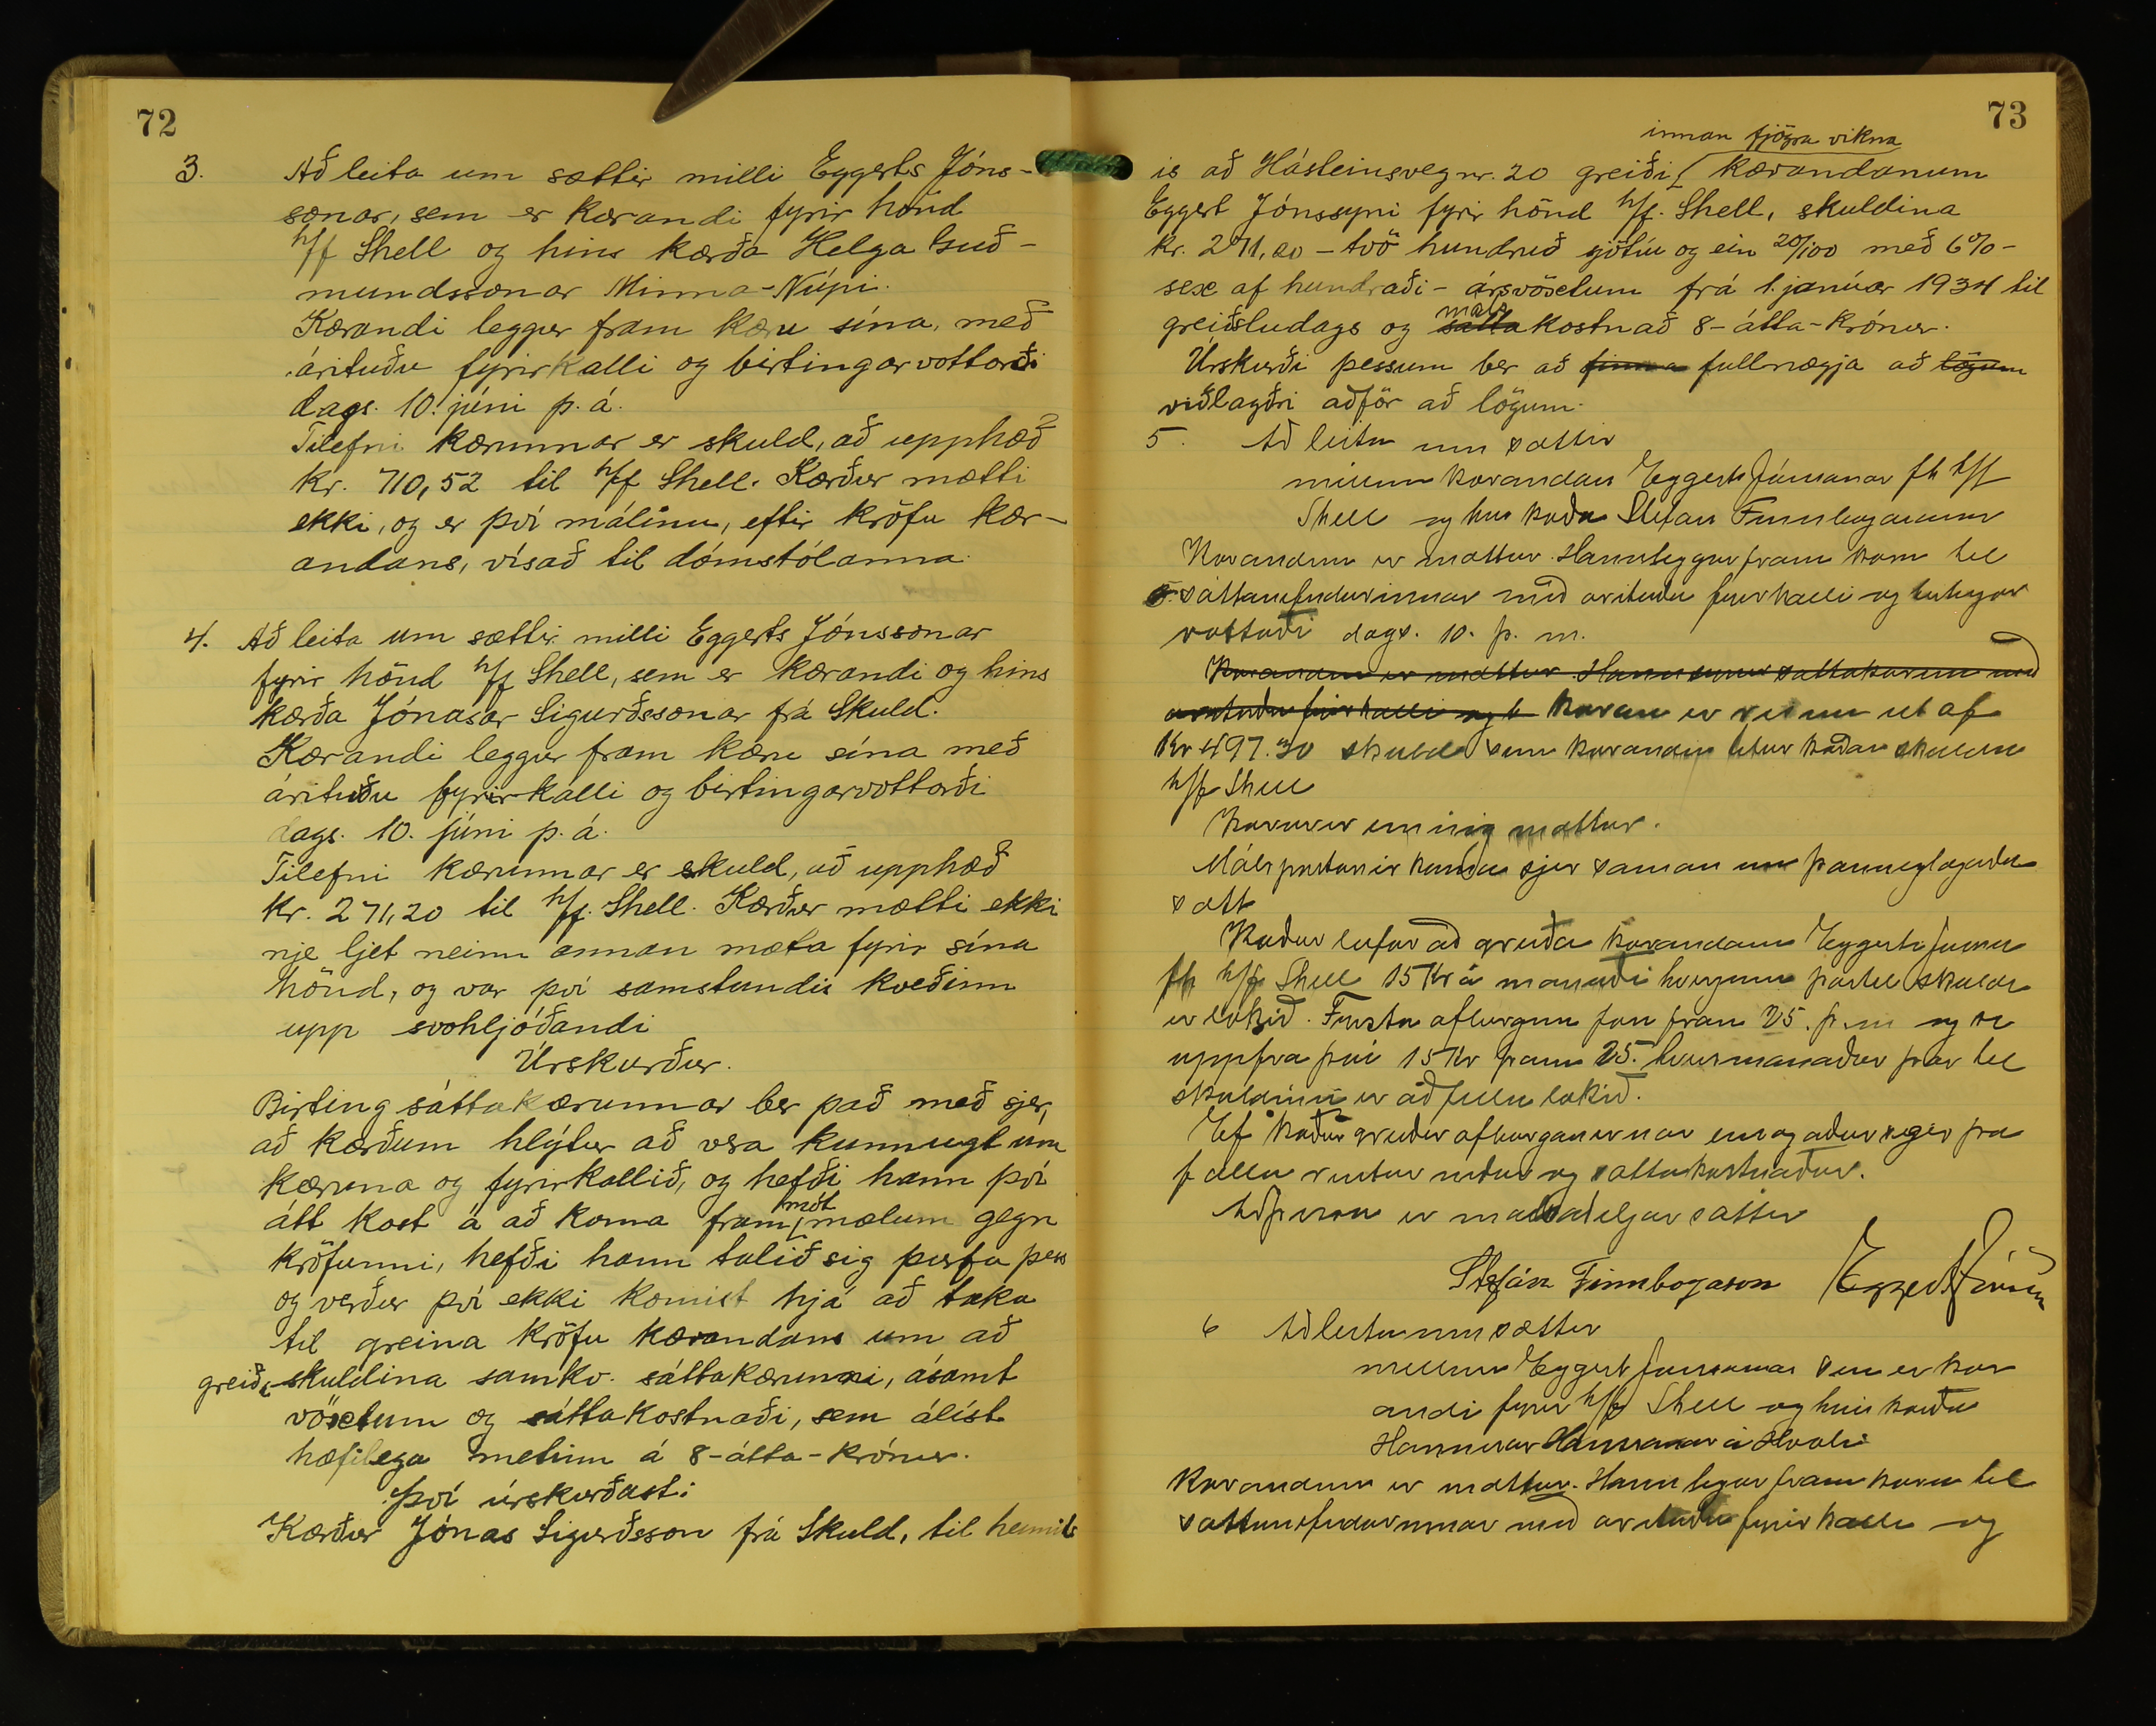 72
3. Að leita um sættir milli Eggerts Jóns-
sonar, sem er kærandi fyrir hönd
h/f Shell og hins kærða Helga Guð-
mundssonar Minna-Núpi.
Kærandi leggur fram kæru sína, með
árituðu fyrirkalli og birtingarvottorði
dags. 10. júni þ. á.
Tilefni kærunnar er skuld, að upphæð
kr. 710,52 til h/f Shell. Kærður mætti
ekki, og er því málinu, eftir kröfu kær-
andans, vísað til dómstólanna.
4. Að leita um sættir milli Eggerts Jónssonar
fyrir hönd h/f Shell, sem er kærandi og hins
kærða Jónasar Sigurðssonar frá Skuld.
Kærandi leggur fram kæru sína með
árituðu fyrirkalli og birtingarvottorði
dags. 10. júni þ. á.
Tilefni kærunnar er skuld, að upphæð
kr. 271,20 til h/f. Shell. Kærður mætti ekki
nje ljet neinn annan mæta fyrir sína
hönd, og var því samstundis kveðinn
upp svohljóðandi
Úrskurður.
Birting sáttakærunnar ber það með sjer,
að kærðum hlýtur að vera kunnugt um
kæruna og fyrirkallið, og hefði hann því
átt kost á að koma fram mót mælum gegn
kröfunni, hefði hann talið sig þurfa þess
og verður því ekki komist hjá að taka
til greina kröfu kærandans um að
greiða skuldina samkv. sáttakærunni, ásamt
vöxtum og sáttakostnaði, sem álíst
hæfilega metinn á 8-átta-krónur.
Því úrskurðast:
Kærður Jónas Sigurðsson frá Skuld, til heimil-
73
innan fjögra vikna
is að Hásteinsveg nr. 20 greiði kærandanum
Eggert Jónssyni fyrir hönd h/f. Shell, skuldina
kr. 271,20 - tvö hundruð sjötíu og ein 20/100 með 6% -
sex af hundraði - ársvöxtum frá 1. janúar 1934 til
greiðsludags og sátta máls kostnað 8-átta-krónur.
Úrskurði þessum ber að finna fullnægja að lögum
viðlagðri aðför að lögum.
5. Að leita um sættir
millum kærandans Eggerts Jónssonar fh h/f
Shell og hins kærða Stefáns Finnbogasonar
Kærandinn er mættur. Hann leggur fram kæru til
sáttanefndarinnar með árituðu fyrirkalli og birtingar
vottorði dags. 10. þ. m.
Kærandinn er mættur. Hann sáttakæruna með
árituðu fyrirkalli og b Kæran er risin út af
Kr 497.30 skuld sem kærandin telur kærðan skulda
h/f Shell
Kærður er einnig mættur.
Málspartarnir koma sjer saman um þannig lagaða
sátt
Kærður lofar að greiða kærandanum Eggert Jónssyni
fh h/f Shell 15 Kr á mánuði hverjum þar til skuldin
er lokið. Fyrsta afborgun fari fram 25. þ. m og
uppfrá því 15 Kr þann 25. hvers mánaðar þar til
skuldinni er að fullu lokið.
Ef kærður greiðir afborganirnar eins og áður segir þá
falla rentur niður og sáttakostnaður.
Stefán Finnbogason Eggert Jónsson
6 Að leita um sættir
millum Eggert Jónssonar sem er kær
andi fyrir h/f Shell og hins kærða
Hannesar Hanssonar á Hvoli
Kærandinn er mættur. Hann legur fram kæru til
sáttanefndarinnar með árituðu fyrirkalli og